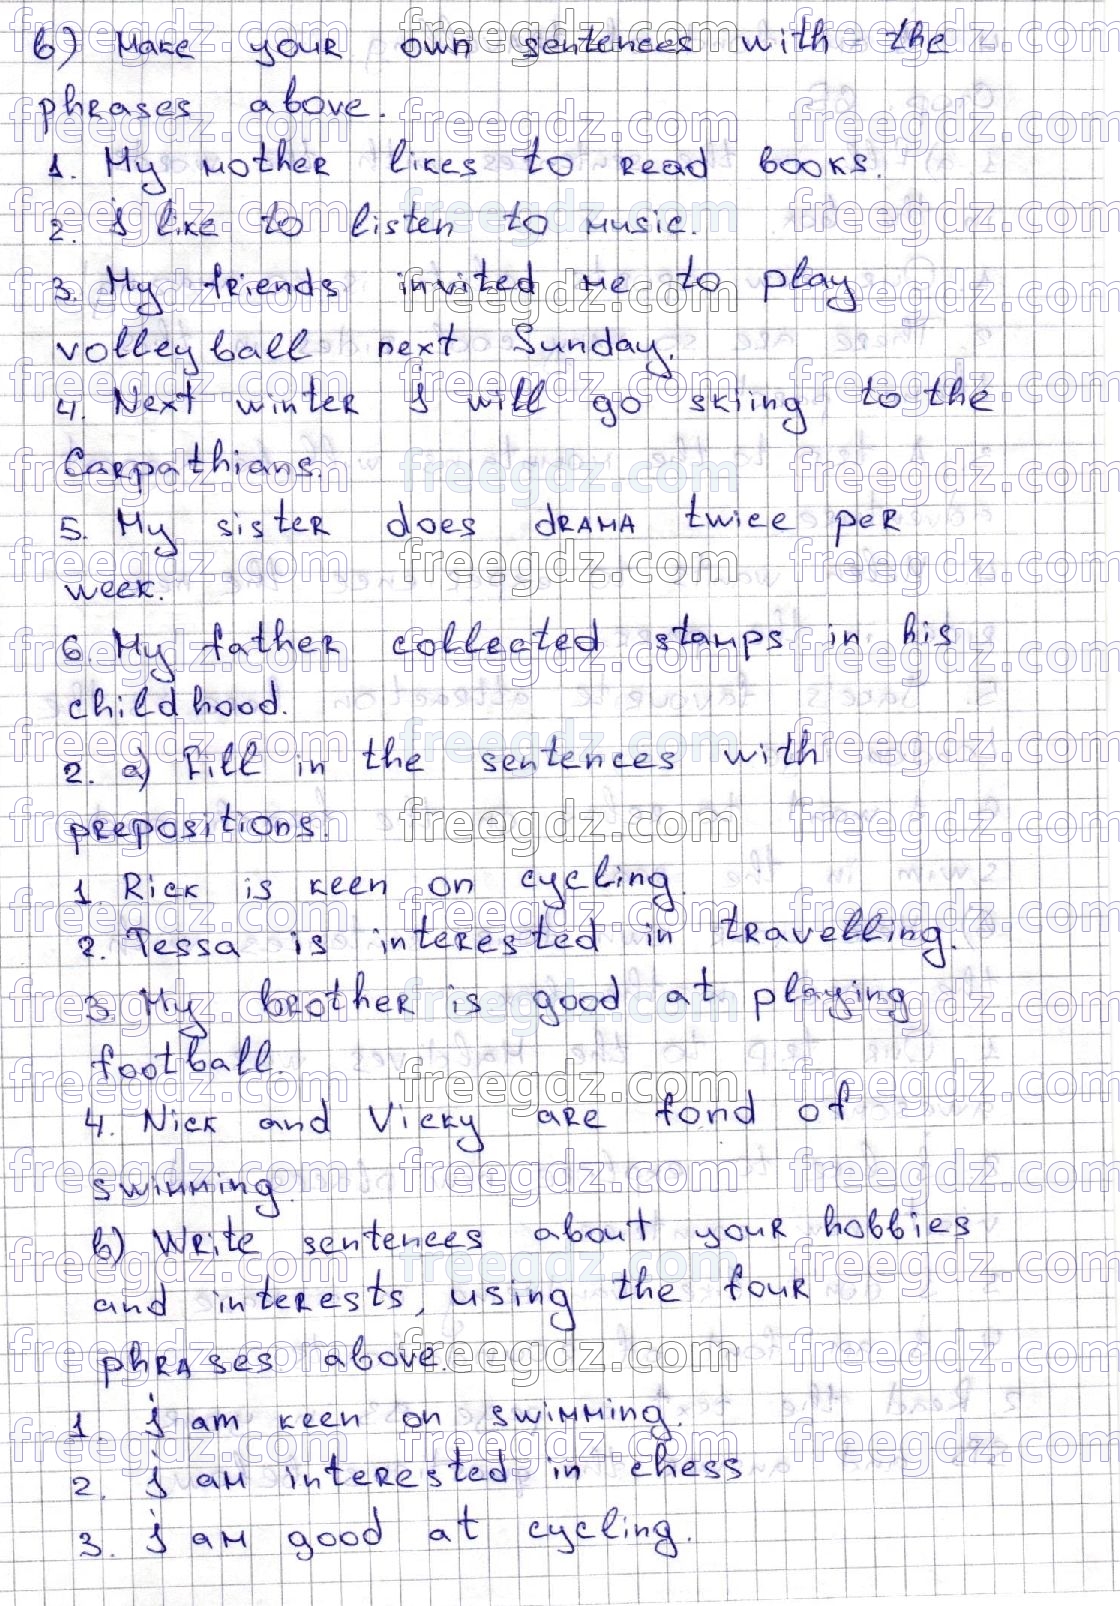 b) Make your own sentences with the
phrases above.
1. My mother likes to read books.
2. I like to listen to music.
3. My friends invited me to play
volleyball next Sunday.
4. Next winter I will go skiing to the
Carpathians.
5. My sister does drama twice per
week.
6. My father collected stamps in his
childhood.
2. a) Fill in the sentences with
prepositions.
1. Rick is keen on cycling.
2. Tessa is interested in travelling.
3. My brother is good at playing
football.
4. Nick and Vicky are fond of
swimming.
b) Write sentences about your hobbies
and interests, using the four
phrases above.
1. I am keen on swimming.
2. I am interested in chess
3. I am good at cycling.